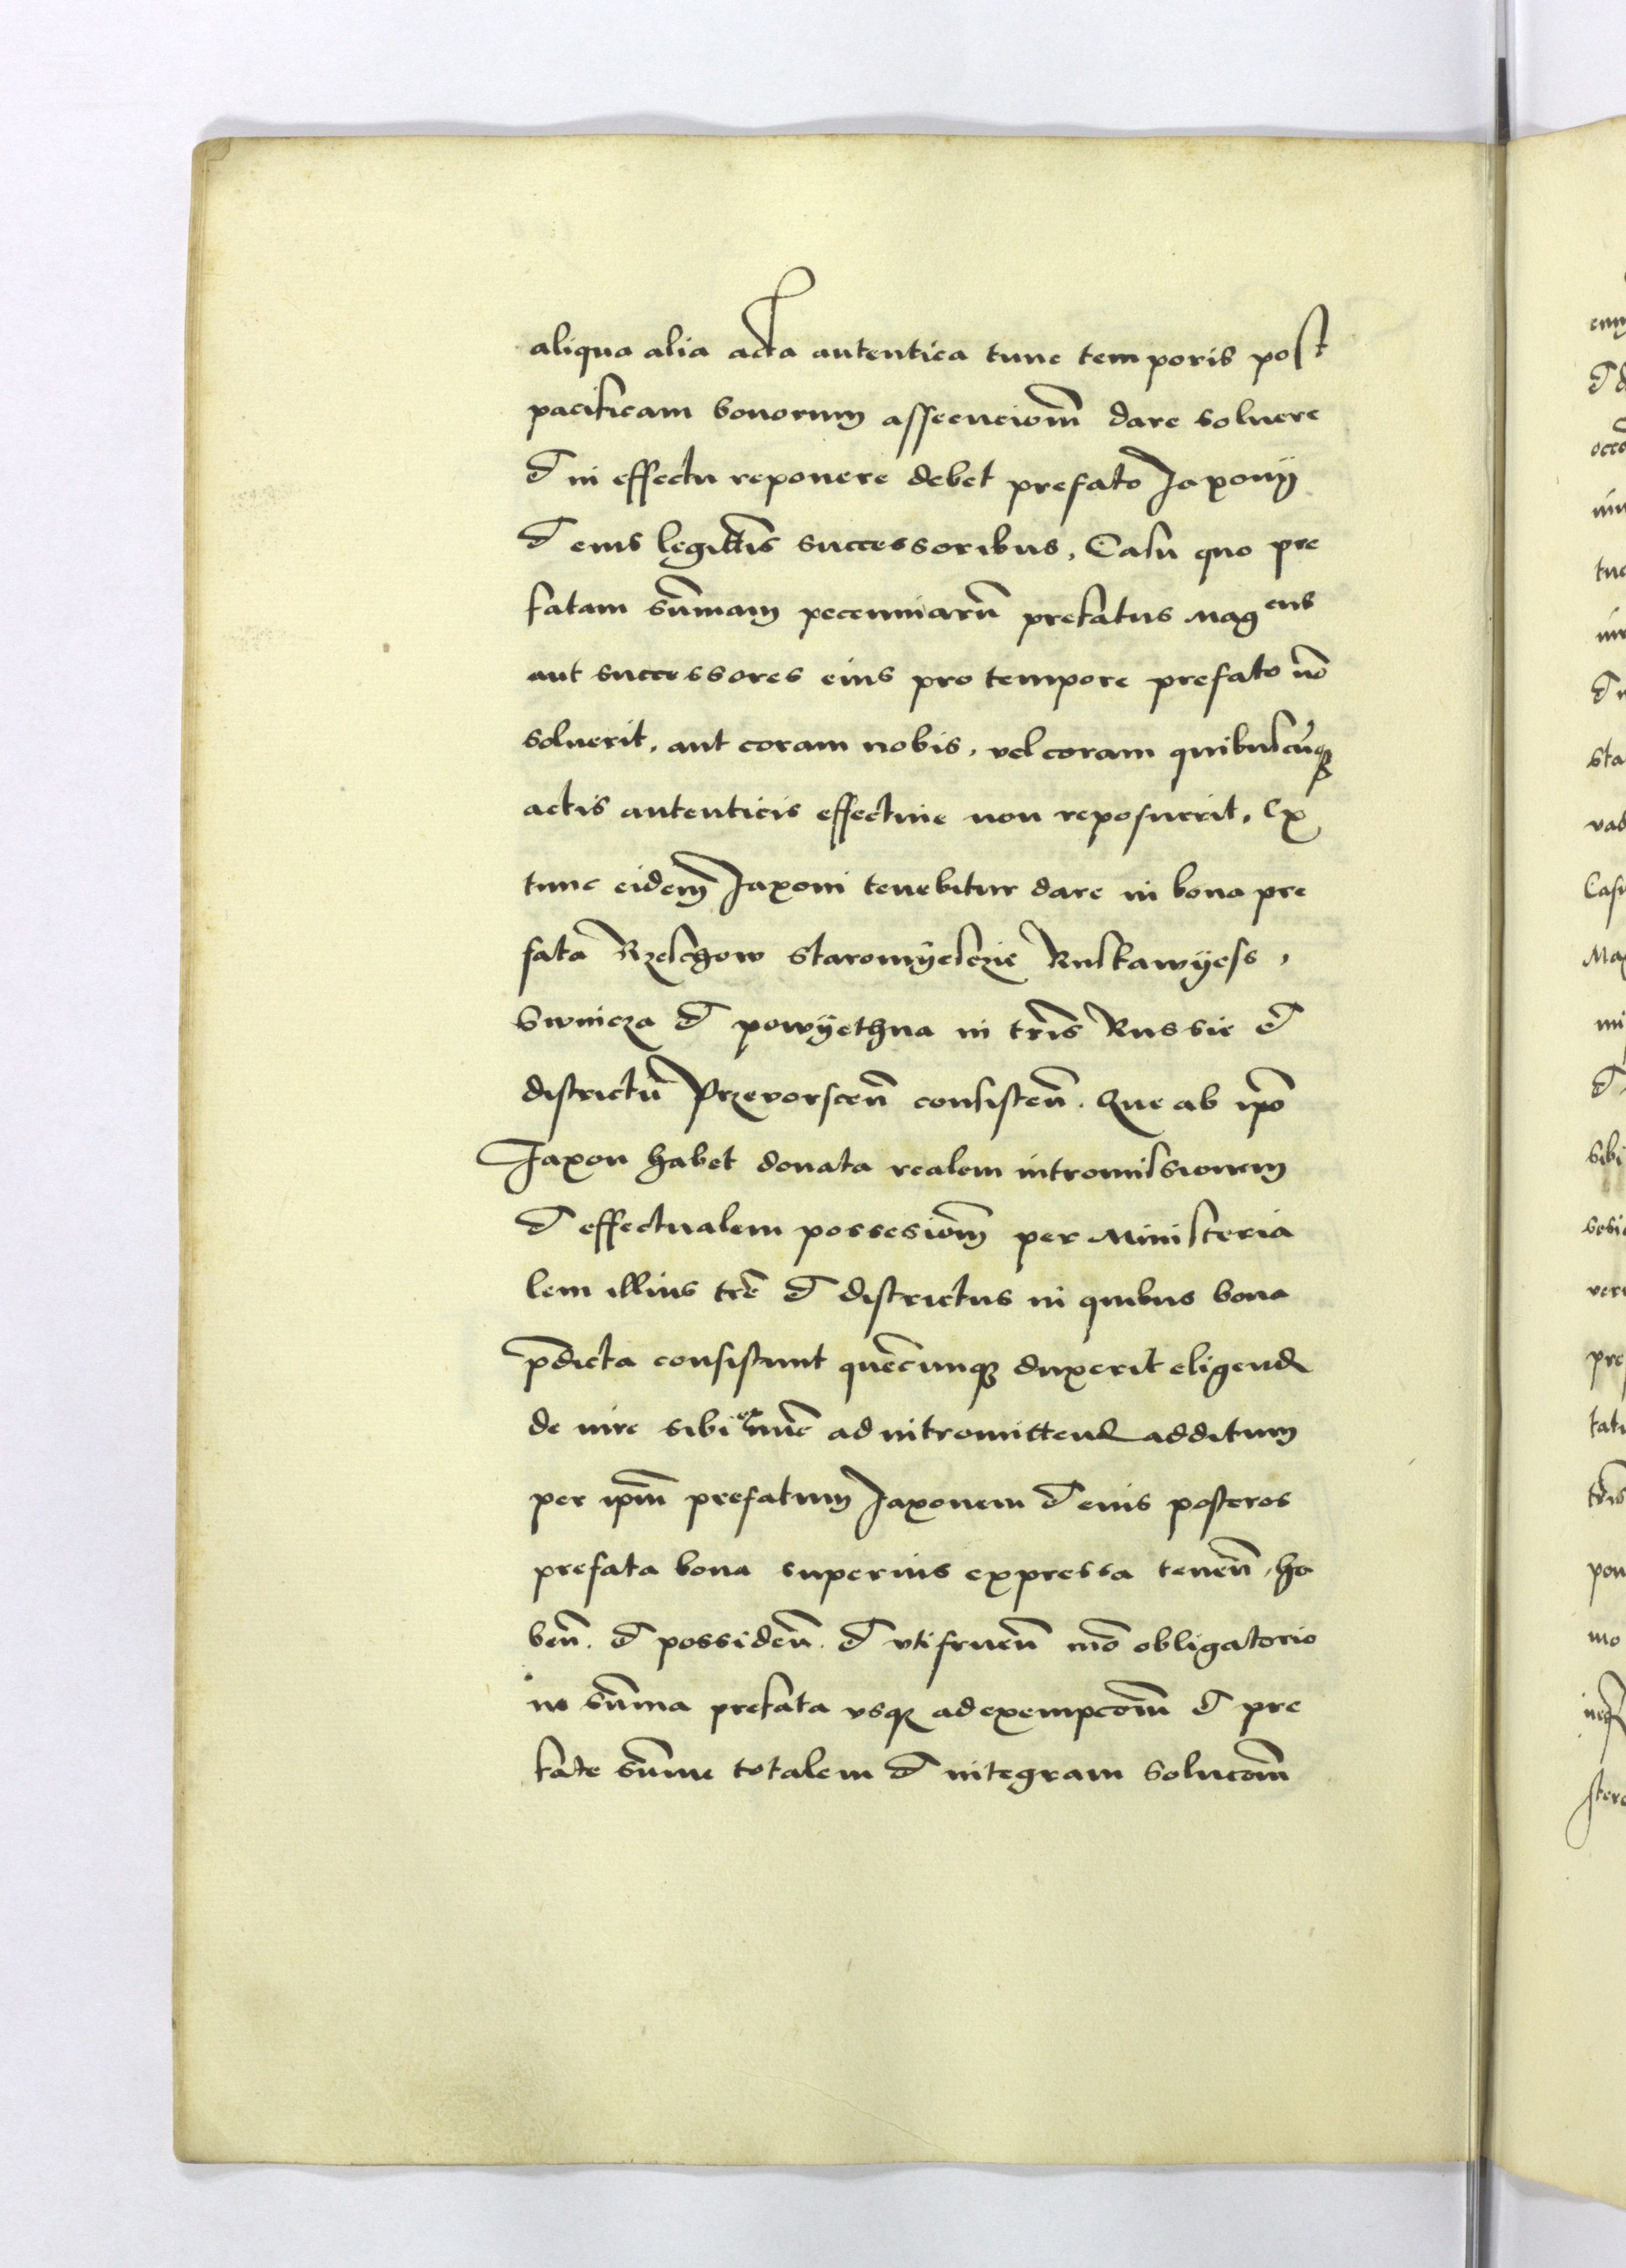 aliqua alia acta autentica tunc temporis post
pacificam bonorum assecucioῆm dare soluere
et in effectu reponere debet prefato Jaxonij
et eius legittĩs successoribus, Casu quo pre
fatam sum̄am pecenniarũ prefatus Mag ens
aut successores eius pro tempore prefato nõ
soluerit, aut coram nobis, vel coram quibuscũqꝫ
actis autenticis effectiue non reposuerit, Ex
tunc eidem Jaxoni tenebitur dare in bona pre
fata Rzeschow Staromyesczie Ruskawyess,
Swilcza et powyethna in tr̃is Russie et
districtũ Przevorscen̄ consisten̄. Que ab ip̃o
Jaxon habet donata realem intromissionem
et effectualem possesiom̄ per Ministeria
lem illius tr̃e et districtus in quibus bona
p̄dicta consistunt quẽcunqꝫ duxerit eligend
de iure sibi ad intromittend additum
per ip̄m prefatum Jaxonem et eius posteros
prefata bona superius expressa tenen̄, ha
ben̄. et possiden̄. et vtifruen̄ mõ obligatorio
in sum̄a prefata vsqꝫ ad exempcom̄ et pre
fate sum̄e totalem et integram solucom̄